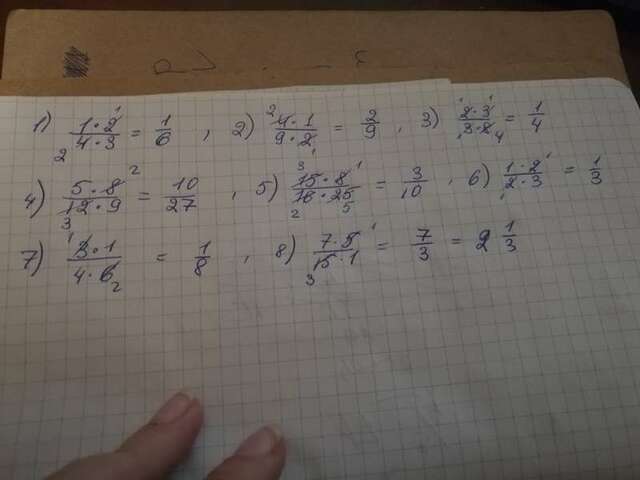 1) (1·2)/(4·3) = 1/6 , 2) (4·1)/(9·2) = 2/9 , 3) (2·3)/(3·8) = 1/4
4) (5·8)/(12·9) = 10/27 , 5) (15·8)/(16·25) = 3/10 , 6) (1·2)/(2·3) = 1/3
7) (3·1)/(4·6) = 1/8 , 8) (7·5)/(15·1) = 7/3 = 2 1/3